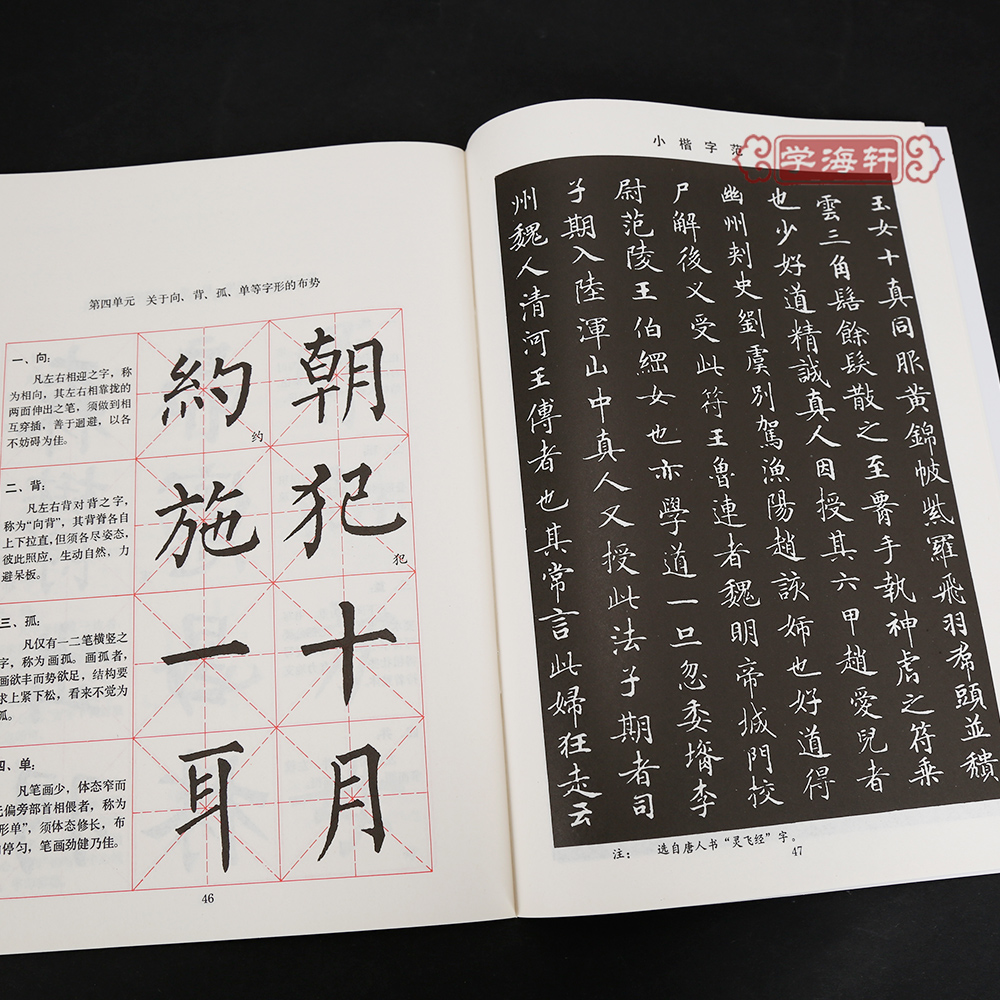 第四单元 关于向、背、孤、单等字形的布势
一、向：
凡左右相迎之字，称
为相向，其左右相靠拢的
两面伸出之笔，须做到相
互穿插，善于迴避，以各
不妨碍为佳。
約 朝
约
二、背：
凡左右背对背之字，
称为“向背”，其背脊各自
上下拉直，但须各尽姿态，
彼此照应，生动自然，力
避呆板。
施 犯
犯
三、孤：
凡仅有一二笔横竖之
字，称为画孤。画孤者，
画欲丰而势欲足，结构要
求上紧下松，看来不觉为
孤。
一 十
四、单：
凡笔画少，体态窄而
无偏旁部首相偎者，称为
“形单”，须体态修长，布
白停匀，笔画劲健乃佳。
耳 月
46
小楷字范
学海轩
玉女十真同服黄錦帔紫羅飛羽帬頭並穨
雲三角髻餘髮散之至罽手執神虎之符乗
也少好道精誠真人因授其六甲趙愛兒者
幽州刾史劉虞別駕漁陽趙該姊也好道得
尸解後又受此符王魯連者魏明帝城門校
尉范陵王伯綱女也亦學道一旦忽委壻李
子期入陸渾山中真人又授此法子期者司
州魏人清河王傳者也其常言此婦狂走云
注： 选自唐人书“灵飞经”字。
47